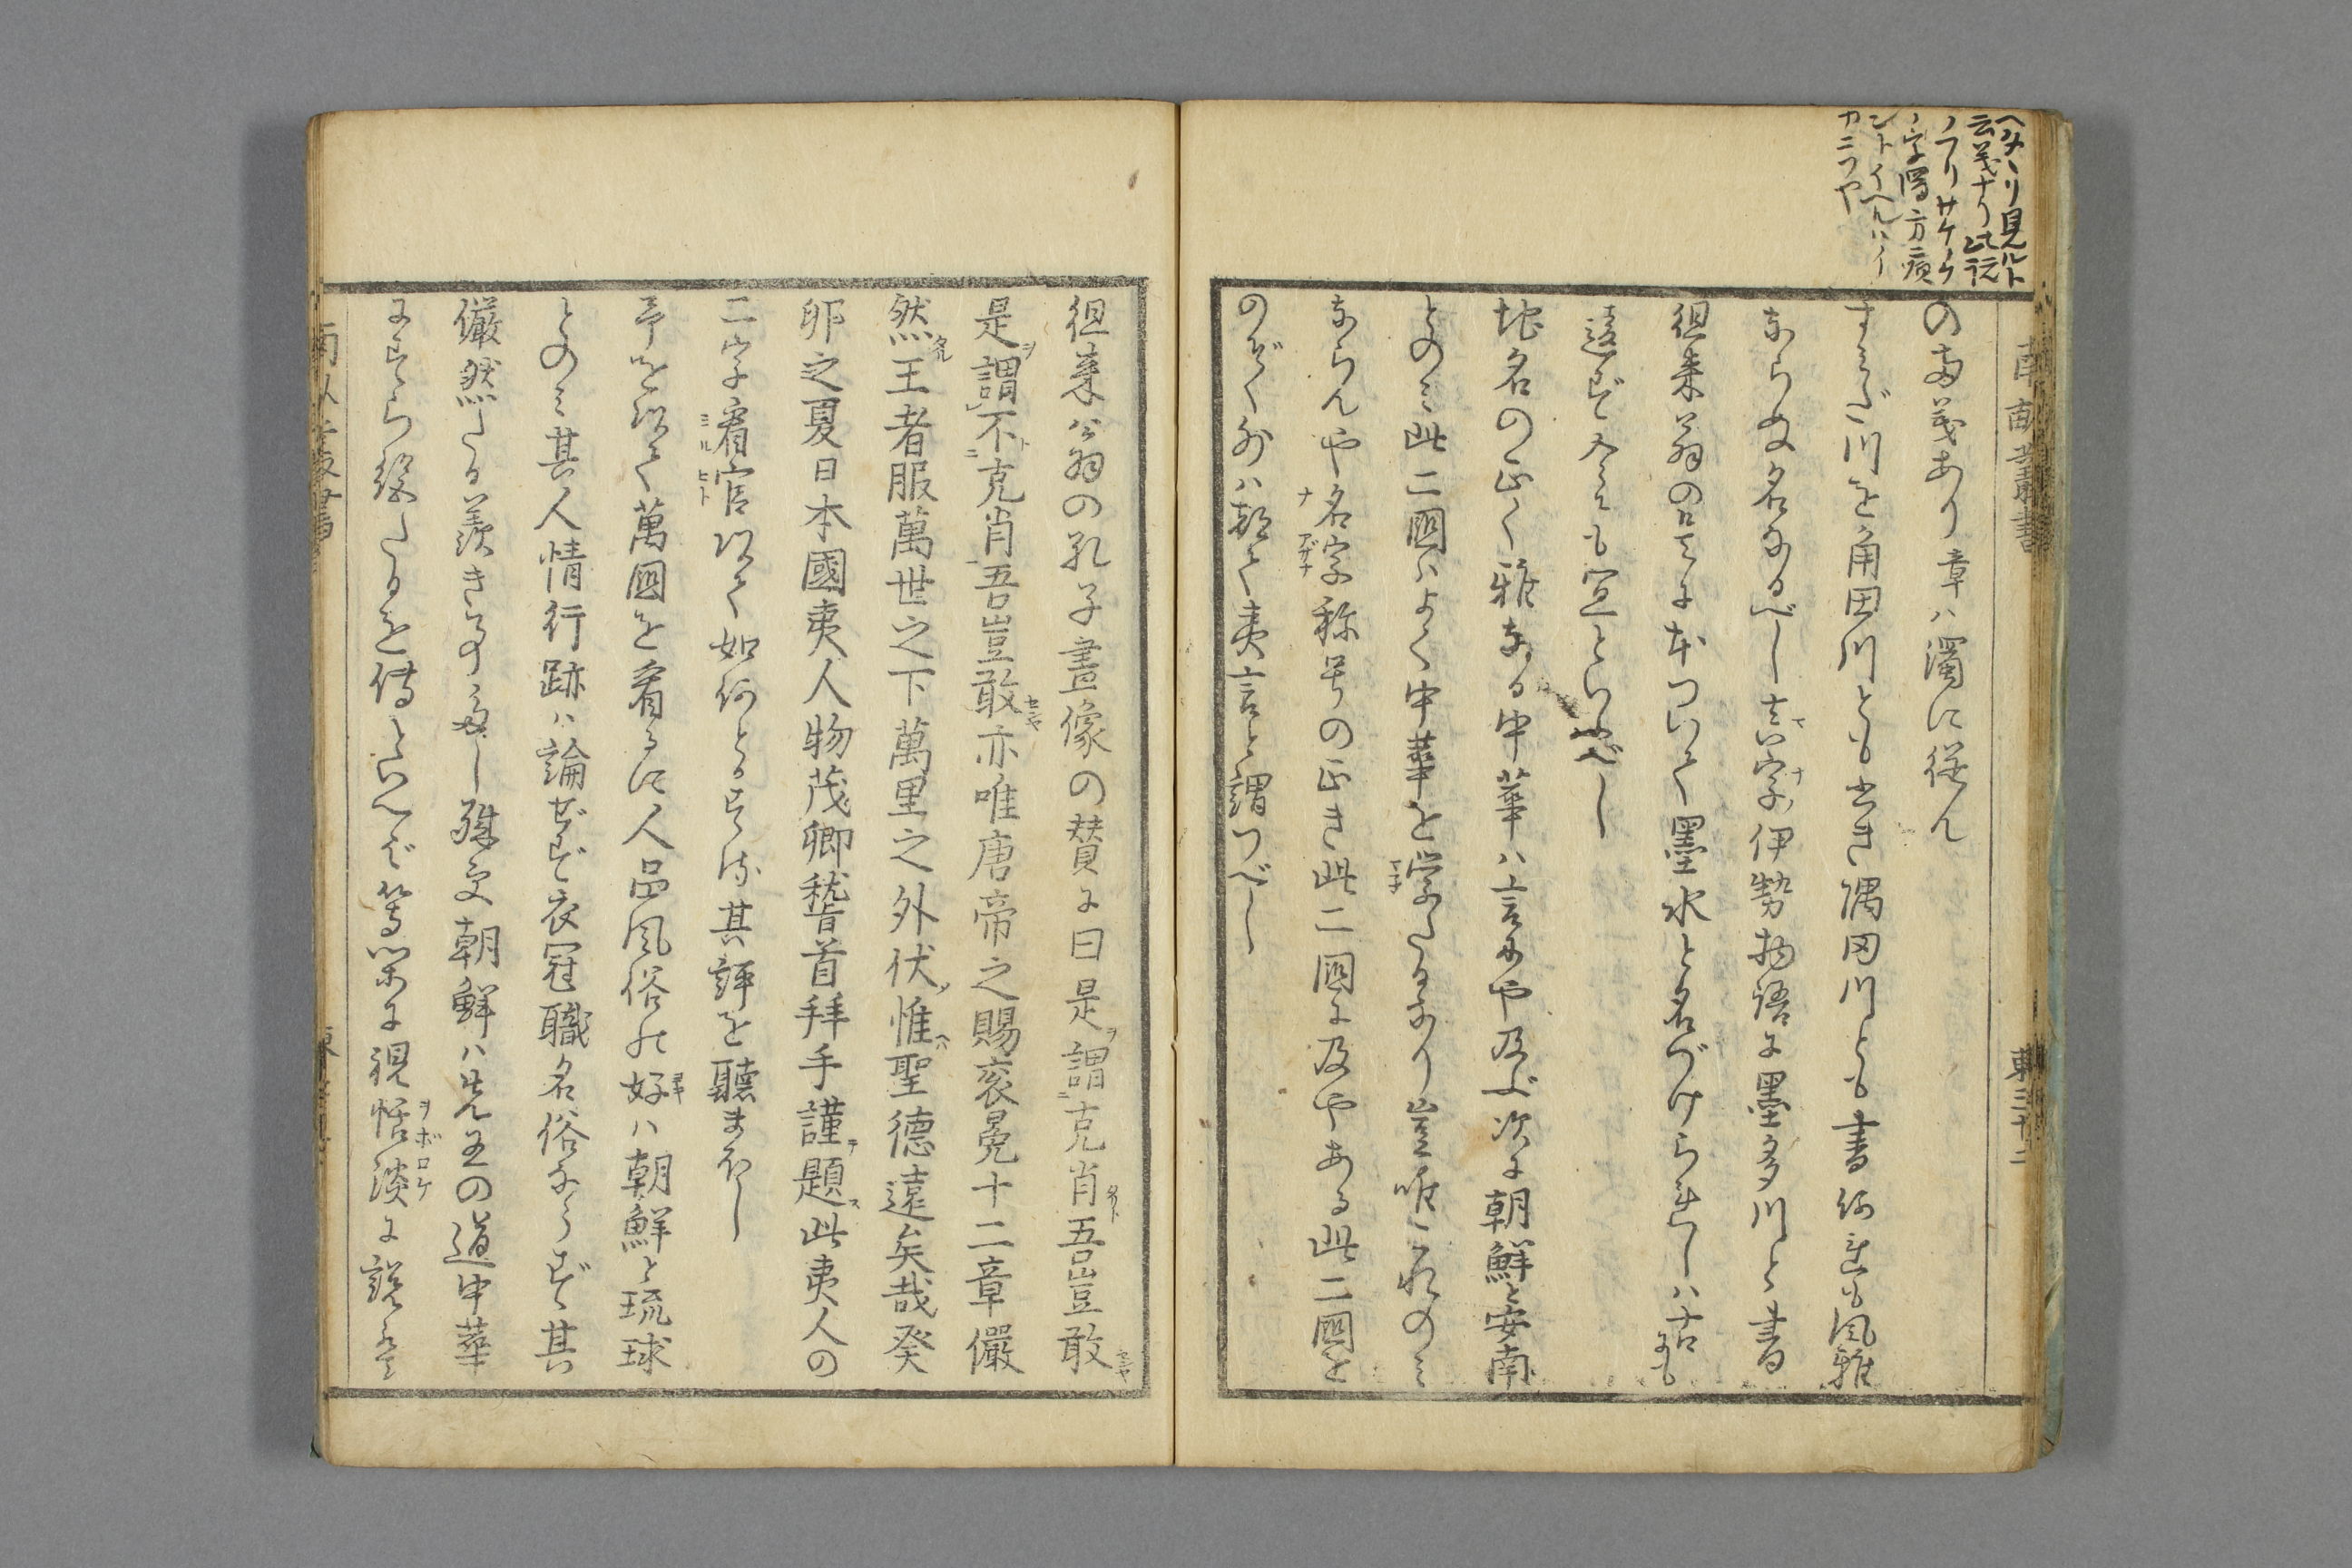 ヘタヽリ見ルト
云義ナリ此訳
ノフリサケノケ
ノ字濁方頭
シトイヘルハイ
カニソヤ
南畝叢書
の両義あり章ハ濁に從ん
すミだ川を角田川とも書き隅田川とも書何れも風雅
ならぬ名なるべし真字伊勢物語に墨多川と書
徂来翁の是に本づいて墨水と名づけられしハ古にも
違ず今にも宜といふべし
地名の正く雅なる中華ハ言にや及ぶ次に朝鮮と安南
とのミ此二國ハよく中華を学たるなり豈唯これのミ
ならんや名字称号の正き此二國に及やある此二國を
のぞく外ハ都て夷言と謂つべし
徂来翁の孔子畫像の賛に曰是謂克肖吾豈敢
是謂不克肖吾豈敢亦唯唐帝之賜衮冕十二章儼
然王者服萬世之下萬里之外伏惟聖德遠矣哉癸
卯之夏日本國夷人物茂卿稽首拜手謹題此夷人の
二字看官以て如何とるや我其評を聽まほし
予を以て萬國を看るに人品風俗の好ハ朝鮮と琉球
とのミ其人情行跡ハ論ぜず衣冠職名俗ならず其
儼然たる羨き事多し殊更朝鮮ハ先王の道中華
にすら絶たるを傳といへど等閑に視恬淡に説